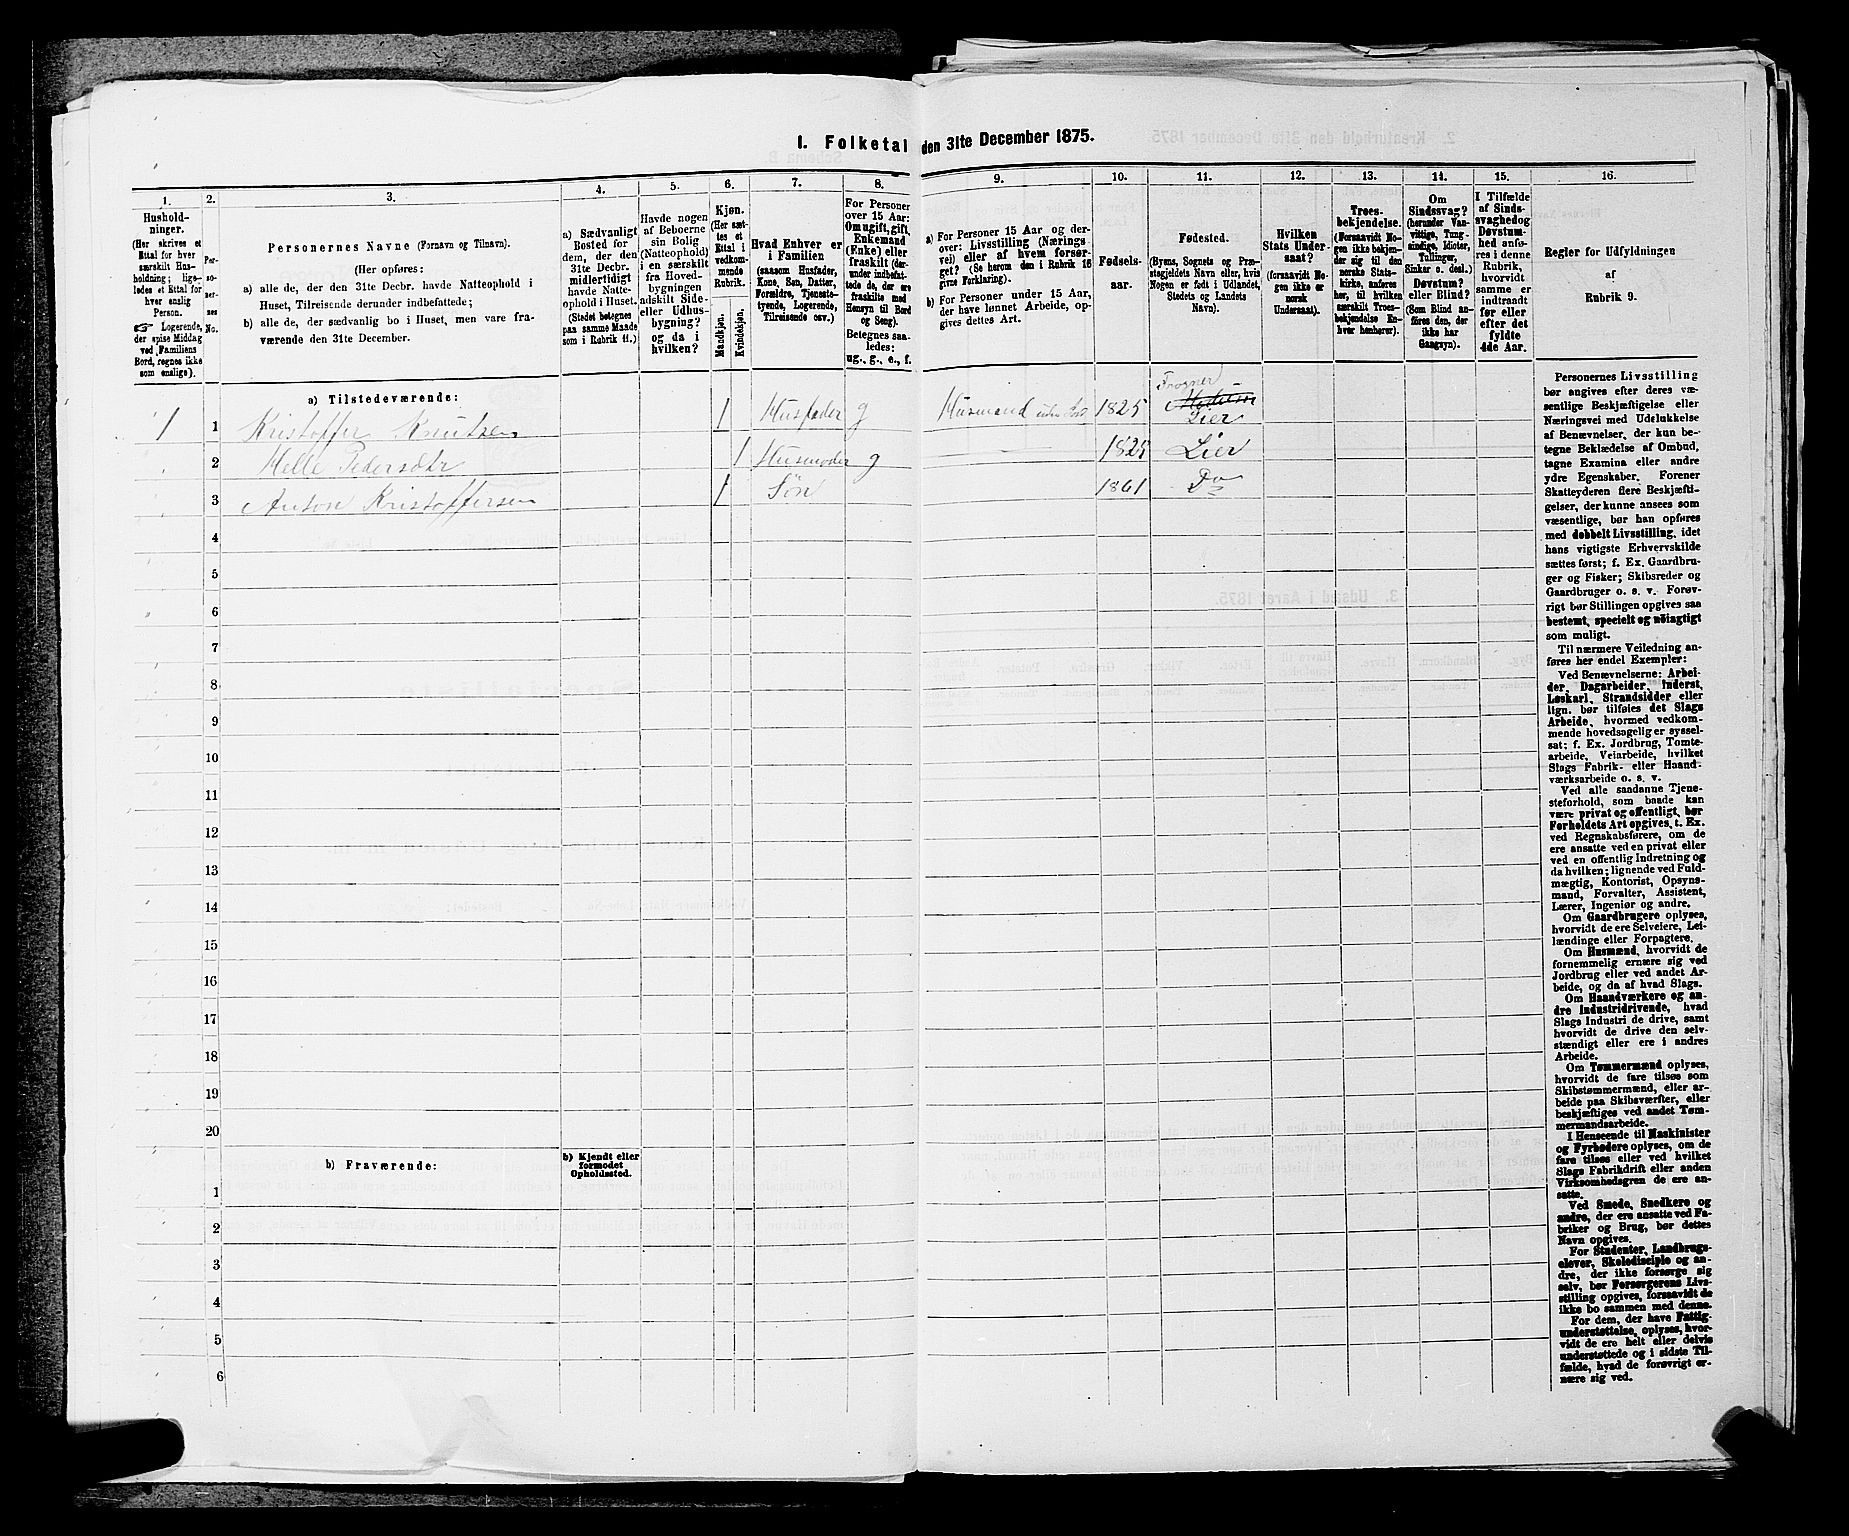 1. Folketal den 31te December 1875.
1.
Hushold-
ninger.
(Her skrives et
Ettal for hver
særskilt Hus-
holdning; lige-
ledes et Ettal for
hver enslig
Person.
☞ Logerende,
der spise Middag
ved Familiens
Bord, regnes ikke
som enslige).
2.
Per-
so-
ner-
nes
No.
3.
Personernes Navne (Fornavn og Tilnavn).
(Her opføres:
a) alle de, der den 31te Decbr. havde Natteophold i
Huset, Tilreisende derunder indbefattede;
b) alle de, der sædvanlig bo i Huset, men vare fra-
værende den 31te December.
4.
a) Sædvanligt
Bosted for
dem, der den
31te Decbr.
midlertidigt
havde Natte-
ophold i Huset.
(Stedet betegnes
paa samme Maade
som i Rubrik 11.)
5.
Havde nogen
af Beboerne
sin Bolig
(Natteophold)
i en særskilt
fra Hoved-
bygningen
adskilt Side-
eller Udhus-
bygning?
og da i
hvilken?
6.
Kjøn.
(Her sæt-
tes et
Ettal i
vedkom-
mende
Rubrik.
Mandkjøn.
Kvindekjøn.
7.
Hvad Enhver er
i Familien
(saasom Husfader,
Kone, Søn, Datter,
Forældre, Tjeneste-
tyende, Logerende,
Tilreisende osv.)
8.
For Personer
over 15 Aar:
Om ugift, gift,
Enkemand
(Enke) eller
fraskilt (der-
under indbefat-
tede de, der ere
fraskilte med
Hensyn til Bord
og Seng).
Betegnes saa-
ledes:
ug., g., e., f.
9.
a) For Personer 15 Aar og der-
over: Livsstilling (Nærings
vei) eller af hvem forsør-
get? (Se herom den i Rubrik 16
givne Forklaring).
b) For Personer under 15 Aar,
der have lønnet Arbeide, op-
gives dettes Art.
10.
Fødsels-
aar.
11.
Fødested.
(Byens, Sognets og Præ-
stegjeldets Navn eller, hvis
Nogen er født i Udlandet,
Stedets og Landets
Navn).
12.
Hvilken
Stats Under-
saat?
(forsaavidt No-
gen ikke er
norsk
Undersaat).
13.
Troes-
bekjendelse.
(Forsaavidt No-
gen ikke bekjen-
der sig til den
norske Stats-
kirke, anføres
her, til hvilken
særskilt Troes-
bekjendelse En-
hver henhører).
14.
Om
Sindssvag?
(herunder Van-
vittige, Tung-
sindige, Idioter,
Tullinger,
Sinker o. desl.)
Døvstum?
eller Blind?
(Som Blind an-
føres den, der
ikke har
Gangsyn).
15.
I Tilfælde
af Sinds-
svaghed og
Døvstum-
hed anfø-
res i denne
Rubrik,
hvorvidt
samme er
indtraadt
før eller
efter det
fyldte
4de Aar.
16.
Regler for Udfyldningen
af
Rubrik 9.
a) Tilstedeværende:
1 1 Kristoffer Knutsen 1 Husfader g Husmand uden Jord 1825 Frogner Modum Lier
2 Helle Pedersdtr 1 Husmoder g 1825 Lier
3 Anton Kristoffersen 1 Søn 1861 Do
4
5
6
7
8
9
10
11
12
13
14
15
16
17
18
19
20
b) Fraværende:
b) Kjendt eller
formodet
Opholdssted.
1
2
3
4
5
6
Personernes Livsstilling
bør angives efter deres væ-
sentlige Beskjæftigelse eller
Næringsvei med Udelukkelse
af Benævnelser, der kun be-
tegne Beklædelse af Ombud,
tagne Examina eller andre
ydre Egenskaber. Forener
Skatteyderen flere Beskjæfti-
gelser, der kunne ansees som
væsentlige, bør han opføres
med dobbelt Livsstilling, idet
hans vigtigste Erhvervskilde
sættes først; f. Ex. Gaardbru-
ger og Fisker; Skibsreder og
Gaardbruger o. s. v. Forøv-
rigt bør Stillingen opgives saa
bestemt, specielt og nöiagtigt
som muligt.
Til nærmere Veiledning an-
føres her endel Exempler:
Ved Benævnelserne: Arbei-
der, Dagarbeider, Inderst,
Løskarl, Strandsidder eller
lign. bør tilføies det Slags
Arbeide, hvormed vedkom-
mende hovedsagelig er syssel-
sat; f. Ex. Jordbrug, Tomte-
arbeide, Veiarbeide, hvilket
Slags Fabrik- eller Haand-
værksarbeide o. s. v.
Ved alle saadanne Tjene-
steforhold, som baade kan
være privat og offentligt, bør
Forholdets Art opgives, t. Ex.
ved Regnskabsførere, om de
ere ansatte ved en privat eller
ved en offentlig Indretning og
da hvilken; lignende ved Fuld-
mægtig, Kontorist, Opsyns-
mand, Forvalter, Assistent,
Lærer, Ingeniør og andre.
Om Gaardbrugere oplyses,
hvorvidt de ere Selveiere, Lei-
lændinge eller Forpagtere.
Om Husmænd, hvorvidt de
fornemmelig ernære sig ved
Jordbrug eller ved andet Ar-
beide, og da af hvad Slags.
Om Haandværkere og an-
dre Industridrivende, hvad
Slags Industri de drive, samt
hvorvidt de drive den selv-
stændigt eller ere i andres
Arbeide.
Om Tømmermænd oplyses,
hvorvidt de fare tilsøs som
Skibstømmermænd, eller ar-
beide paa Skibsværfter, eller
beskjæftiges ved andet Tøm-
mermandsarbeide.
I Henseende til Maskinister
og Fyrbødere oplyses, om de
fare tilsøs eller ved hvilket
Slags Fabrikdrift eller anden
Virksomhedsgren de ere an-
satte.
Ved Smede, Snedkere og
andre, der ere ansatte ved Fa-
briker og Brug, bør dettes
Navn opgives.
For Studenter, Landbrugs-
elever, Skoledisciple og an-
dre, der ikke forsørge sig
selv, bør Forsørgerens Livs-
stilling opgives, forsaavidt de
ikke bo sammen med denne.
For dem, der have Fattig-
understøttelse, oplyses, hvor-
vidt de ere helt eller delvis
understøttede og i sidste Til-
fælde, hvad de forøvrigt er-
nære sig ved.